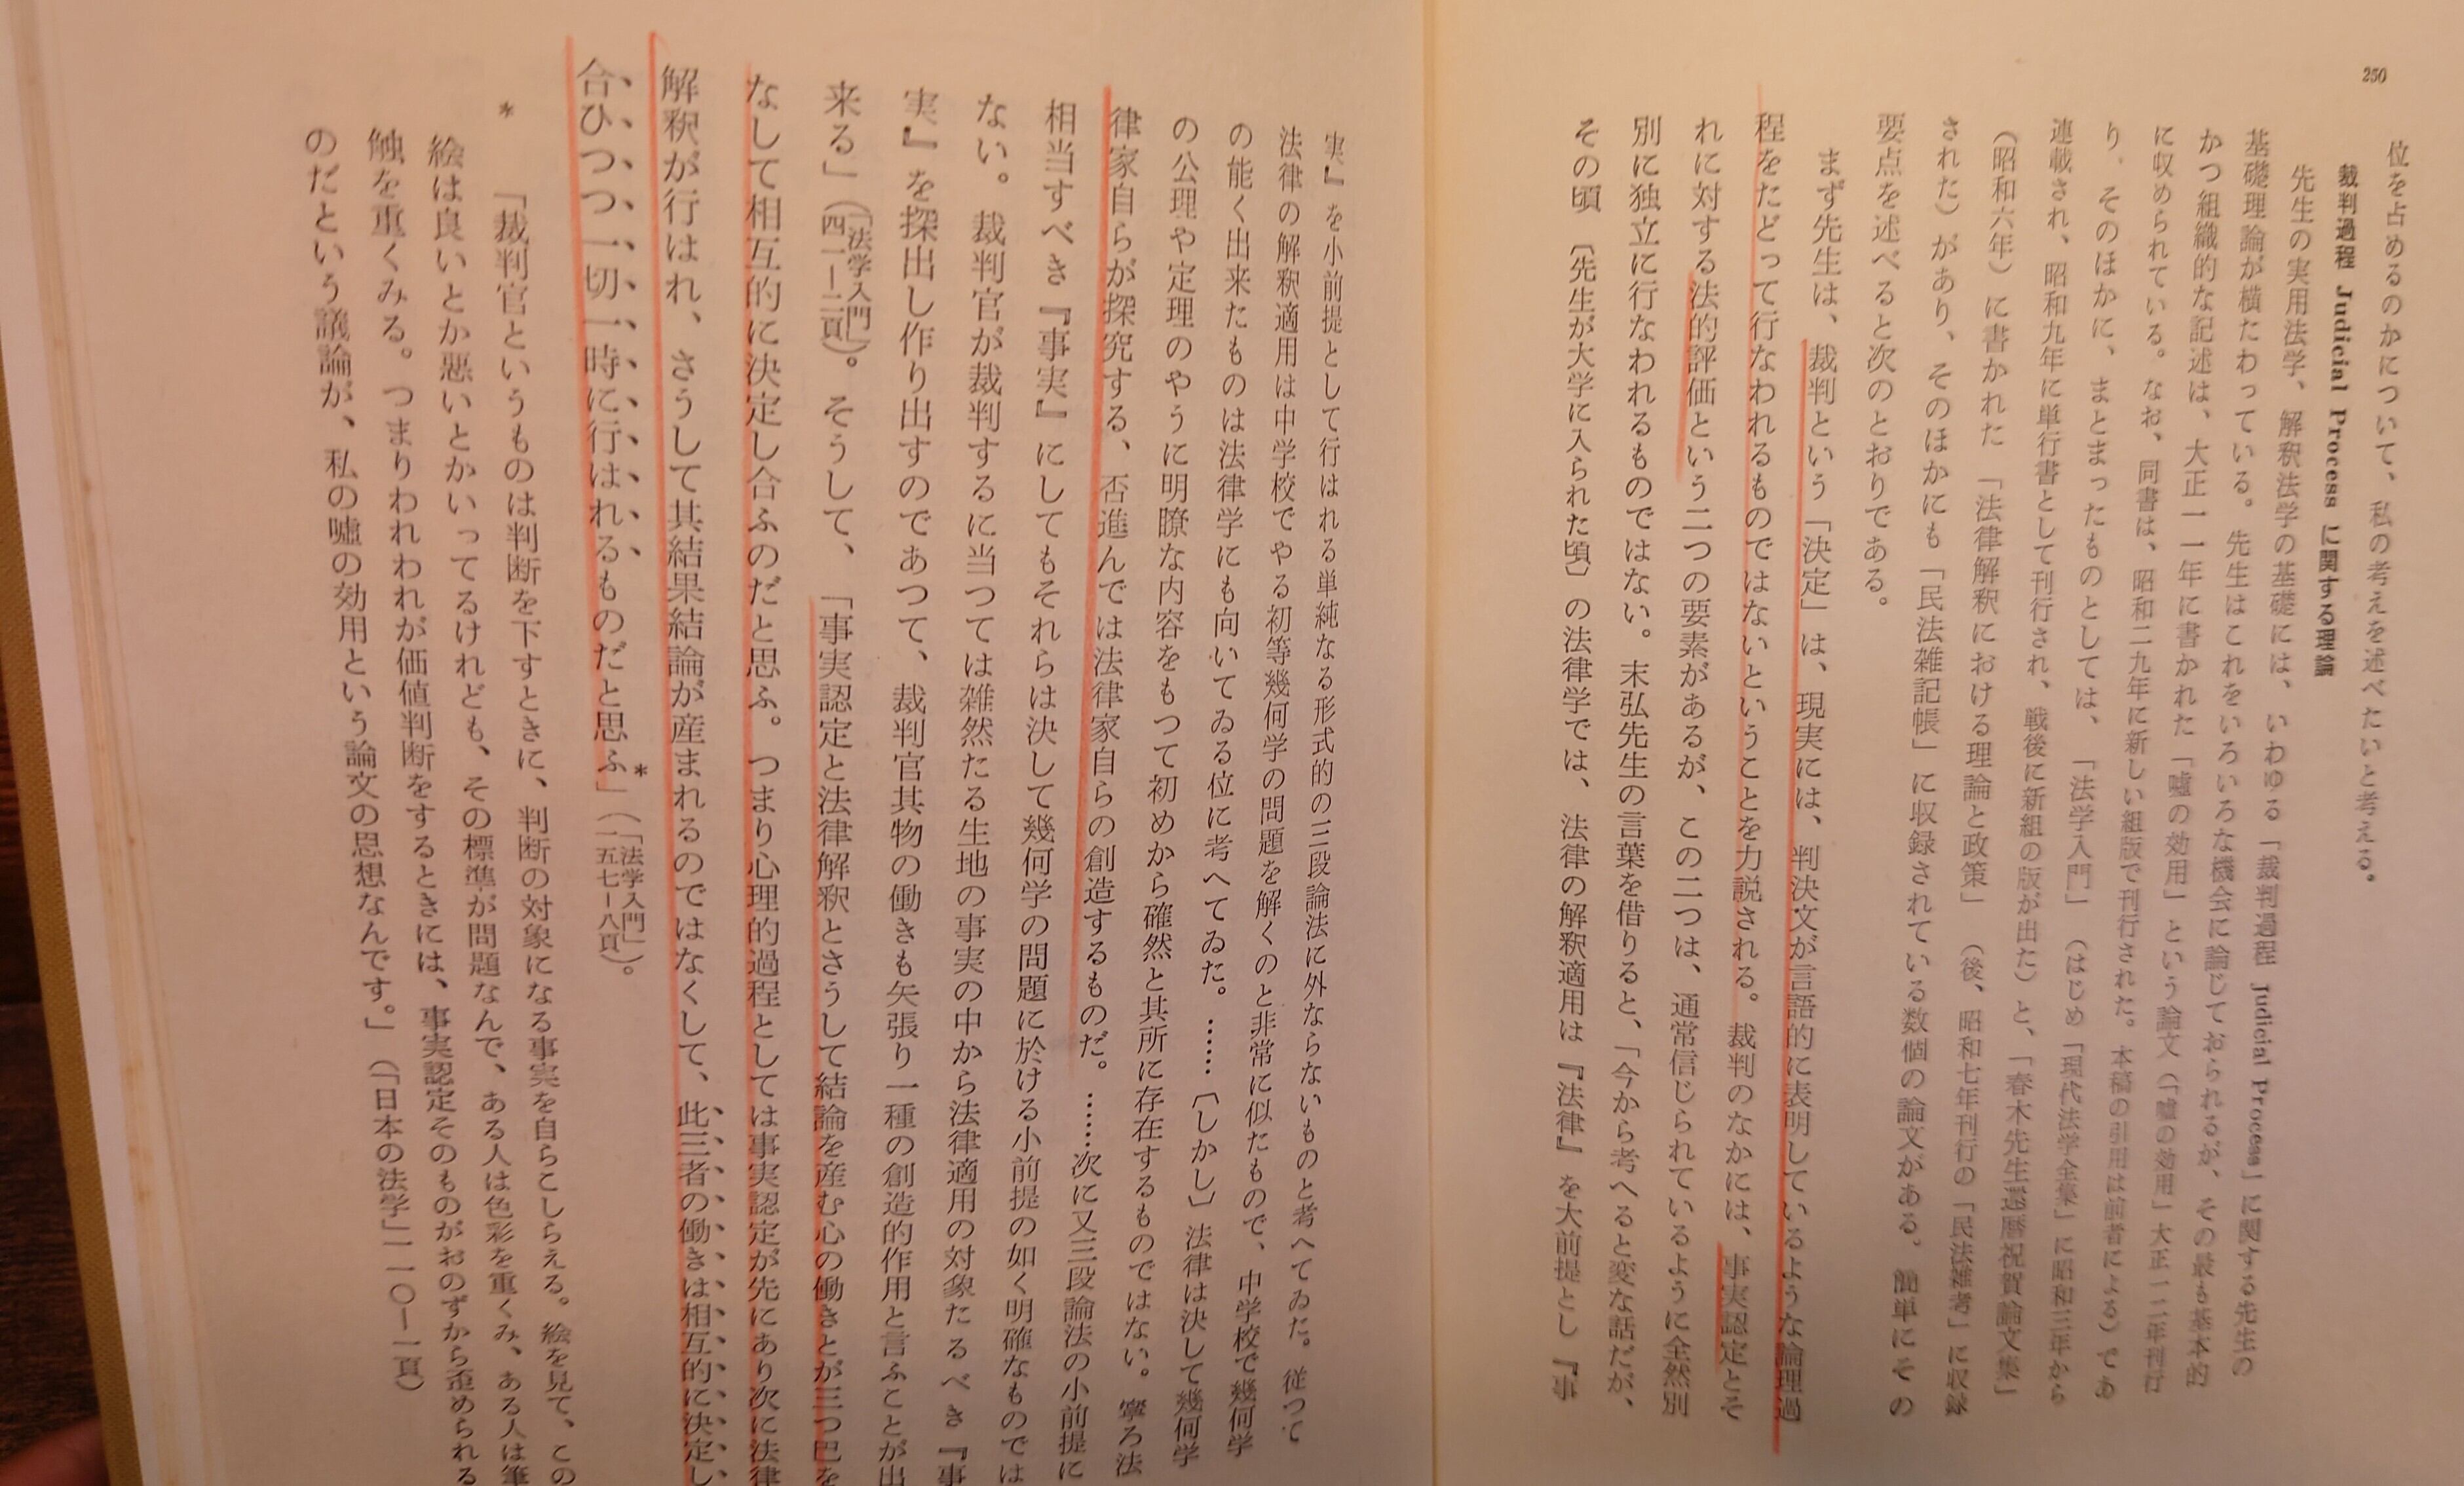 250
位を占めるのかについて、私の考えを述べたいと考える。
裁判過程 Judicial Process に関する理論
先生の実用法学、解釈法学の基礎には、いわゆる「裁判過程 Judicial Process」に関する先生の
基礎理論が横たわっている。先生はこれをいろいろな機会に論じておられるが、その最も基本的
かつ組織的な記述は、大正一一年に書かれた「嘘の効用」という論文（「嘘の効用」大正一二年刊行
に収められている。なお、同書は、昭和二九年に新しい組版で刊行された。本稿の引用は前者による）であ
り、そのほかに、まとまったものとしては、「法学入門」（はじめ「現代法学全集」に昭和三年から
連載され、昭和九年に単行書として刊行され、戦後に新組の版が出た）と、「春木先生還暦祝賀論文集」
（昭和六年）に書かれた「法律解釈における理論と政策」（後、昭和七年刊行の「民法雑考」に収録
された）があり、そのほかにも「民法雑記帳」に収録されている数個の論文がある。簡単にその
要点を述べると次のとおりである。
まず先生は、裁判という「決定」は、現実には、判決文が言語的に表明しているような論理過
程をたどって行なわれるものではないということを力説される。裁判のなかには、事実認定とそ
れに対する法的評価という二つの要素があるが、この二つは、通常信じられているように全然別
別に独立に行なわれるものではない。末弘先生の言葉を借りると、「今から考へると変な話だが、
その頃〔先生が大学に入られた頃〕の法律学では、法律の解釈適用は『法律』を大前提とし『事
実』を小前提として行はれる単純なる形式的の三段論法に外ならないものと考へてゐた。従つて
法律の解釈適用は中学校でやる初等幾何学の問題を解くのと非常に似たもので、中学校で幾何学
の能く出来たものは法律学にも向いてゐる位に考へてゐた。……〔しかし〕法律は決して幾何学
の公理や定理のやうに明瞭な内容をもつて初めから確然と其所に存在するものではない。寧ろ法
律家自らが探究する、否進んでは法律家自らの創造するものだ。……次に又三段論法の小前提に
相当すべき『事実』にしてもそれらは決して幾何学の問題に於ける小前提の如く明確なものでは
ない。裁判官が裁判するに当つては雑然たる生地の事実の中から法律適用の対象たるべき『事
実』を探出し作り出すのであつて、裁判官其物の働きも矢張り一種の創造的作用と言ふことが出
来る」（「法学入門」四一―二頁）。そうして、「事実認定と法律解釈とさうして結論を産む心の働きとが三つ巴を
なして相互的に決定し合ふのだと思ふ。つまり心理的過程としては事実認定が先にあり次に法律
解釈が行はれ、さうして其結果結論が産まれるのではなくして、此三者の働きは相互的に決定し
合ひつつ一切一時に行はれるものだと思ふ*」（「法学入門」一五七―八頁）。
* 「裁判官というものは判断を下すときに、判断の対象になる事実を自らこしらえる。絵を見て、この
絵は良いとか悪いとかいってるけれども、その標準が問題なんで、ある人は色彩を重くみ、ある人は筆
触を重くみる。つまりわれわれが価値判断をするときには、事実認定そのものがおのずから歪められる
のだという議論が、私の嘘の効用という論文の思想なんです。」（「日本の法学」一一〇―一頁）